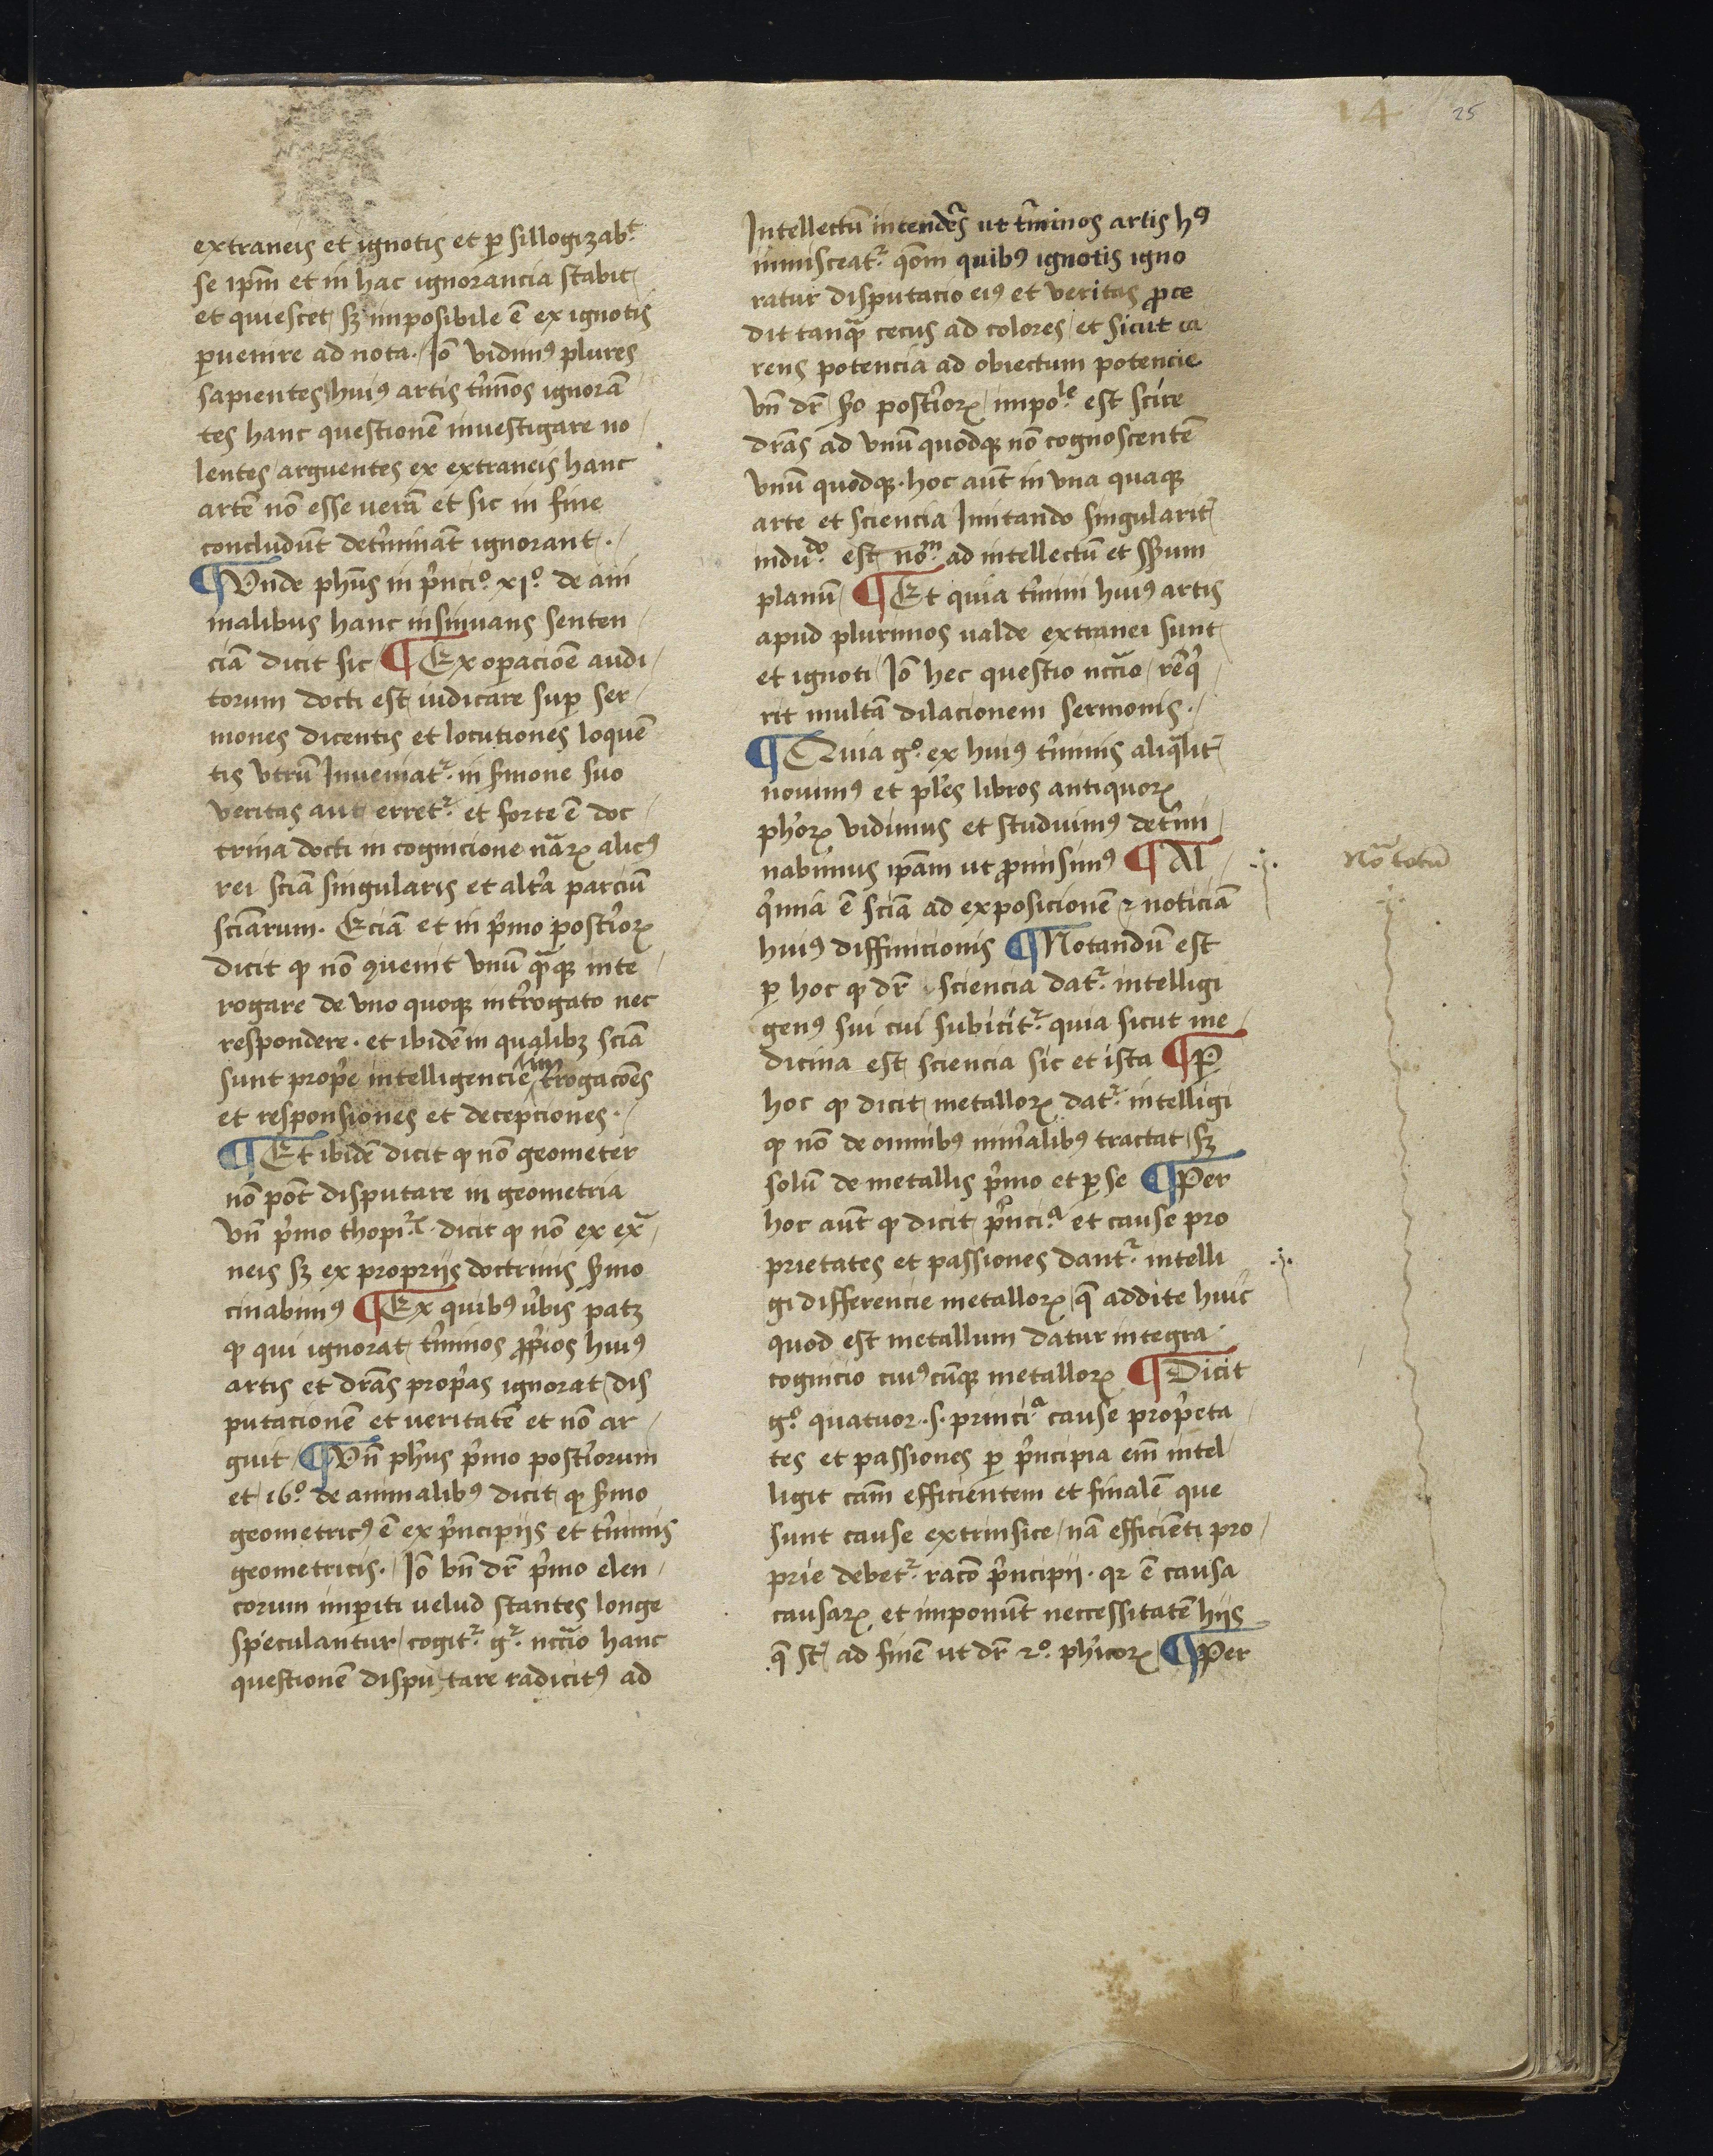 14 25
extraneis et ignotis et ꝑ sillogizab.t
se ip̄m et in hac ignorancia stabit /
et quiescet / sꝫ imposibile ē ex ignotis
ꝑuenire ad nota. / Iō vidimꝰ plures
sapientes / huiꝰ artis t̓mīos ignorā
tes hanc questionē inuestigare no /
lentes / arguentes ex extraneis hanc
artē nō esse verā et sic in fine
concludūt det̓mināt ignorant ·
¶ Vnde phūs in p̓nci.o xi.o de ani
malibus hanc insinuans senten /
ciā dicit sic / ¶ Ex oꝑacioē audi /
torum docti est iudicare suꝑ ser /
mones dicentis et locutiones loquē
tis vtrū Inueniat.r in s̓mone suo
veritas aut erret.r et forte ē doc /
trina docti in cognicione nāꝝ alicꝰ
rei sciā singularis et alt̓a parciū
sciārum. Eciā et in p̓mo post̓ioꝝ
dicit ꝙ nō ꝯuenit vnū qᷓꝗꝫ inte /
rogare de vno quoqꝫ int̓rogato nec
respondere · et ibidē in qualibꝫ sciā
sunt prop̓e intelligencie in t̓rogacōes
et responsiones et decepciones · /
¶ Et ibidē dicit ꝙ nō geometer
nō pōt disputare in geometria
vn̄ p̓mo thopi.c · dicit ꝙ nō ex exᷓ /
neis sꝫ ex proprijs doctrinis s̓mo
cinabimꝰ ¶ Ex quibꝰ v̓bis patꝫ
ꝙ qui ignorat t̓minos ꝓp̓ios huiꝰ
artis et drā̄s prop̓as ignorat / dis
putacionē et veritatē et nō ar /
guit / ¶ Vn̄ ph̓us p̓mo post̓iorum
et / 16.o de animalibꝰ dicit / ꝙ s̓mo
geometricꝰ ē ex p̓ncipijs et t̓minis
geometricis. / Iō bn̄ dr̄ p̓mo elen /
corum imꝑiti velud stantes longe
speculantur / cogit.r g.r ncc̄io hanc
questionē dispu-tare radicitꝰ ad
Intellectū intendēs ut t̓minos artis hꝰ
inmisceat.r qm̄ quibꝰ ignotis igno
ratur disputacio eiꝰ et veritas ꝓce
dit tanqᷓ cecus ad colores / et sicut ca
rens potencia ad obiectum potencie
vn̄ dr̄ / p̓o post̓ioꝝ / impo.le est scire
drā̄s ad vnū quodqꝫ nō cognoscentē
vnū quodqꝫ · hoc aūt in vna quaqꝫ
arte et sciencia Imitando singularit̓
indu.do est / no.m ad intellectū et
planū / ¶ Et quia t̓mini huiꝰ artis
apud plurimos valde extranei sunt
et ignoti / Iō hec questio ncc̄io / req̓ /
rit multā dilacionem sermonis ·
¶ Quia g.o ex huiꝰ t̓minis aliqᷓlit̓
nouimꝰ et pl̓es libros antiquoꝝ
ph̓oꝝ vidimus et studuimꝰ det̓mi /
nabimus ip̄am ut ꝓmisimꝰ ¶ Al /
q̓mia ē sciā ad exposicionē ⁊ noticiā
huiꝰ diffinicionis ¶ Notandū est
ꝑ hoc ꝙ dr̄ / sciencia dat.r intelligi
genꝰ sui cui subicit.r quia sicut me /
dicina est sciencia sic et ista ¶ Ꝑ
hoc ꝙ dicit / metalloꝝ dat.r intelligi
ꝙ nō de omnibꝰ min̓alibꝰ tractat / sꝫ
solū de metallis p̓mo et ꝑ se ¶ Per
hoc aūt ꝙ dicit / p̓nci.a et cause pro
prietates et passiones dant.r intelli
gi differencie metalloꝝ / q̄ addite huic
quod est metallum datur integra
cognicio cuiꝰcūqꝫ metalloꝝ ¶ Dicit
g.o quatuor .s. princi.a cause prop̓eta /
tes et passiones ꝑ p̓ncipia em̄ intel
ligit cām efficientem et finalē que
sunt cause extrinsice / nā efficienti pro /
prie debet.r racō p̓ncipij · qꝛ ē causa
causaꝝ et imponūt neccessitatē hijs
q̄ st̄ / ad finē ut dr̄ 2.o ph̓icoꝝ / ¶ Per
Nōᷓ totū